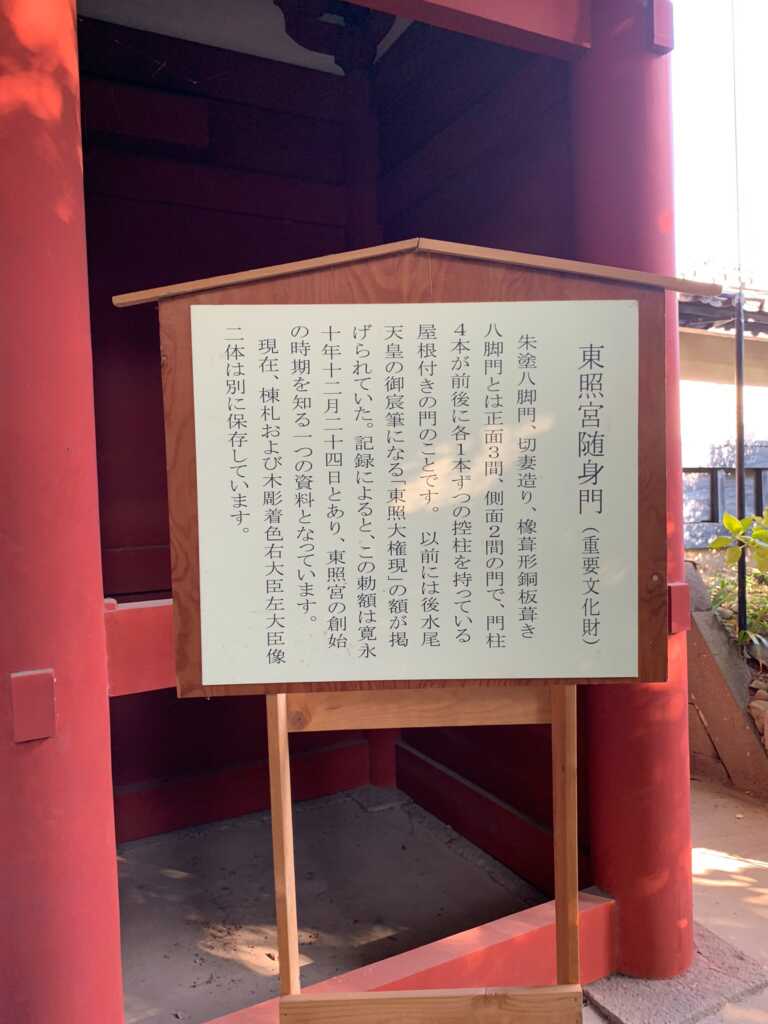 東照宮随身門（重要文化財）
朱塗八脚門、切妻造り、橡葺形銅板葺き
八脚門とは正面３間、側面２間の門で、門柱
４本が前後に各１本ずつの控柱を持っている
屋根付きの門のことです。　以前には後水尾
天皇の御宸筆になる「東照大権現」の額が掲
げられていた。記録によると、この勅額は寛永
十年十二月二十四日とあり、東照宮の創始
の時期を知る一つの資料となっています。
現在、棟札および木彫着色右大臣左大臣像
二体は別に保存しています。